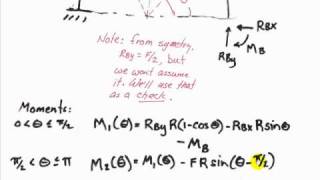 RBx
MB
RBy
Note: from symetry,
RBy = F/2, but
we wont assume
it. We'll use that
as a check.
Moments:
0<θ≤π/2 M₁(θ)= RBy R(1-cosθ) - RBx R sinθ
- MB
π/2<θ≤π M₂(θ)= M₁(θ) - FR sin(θ-π/2)